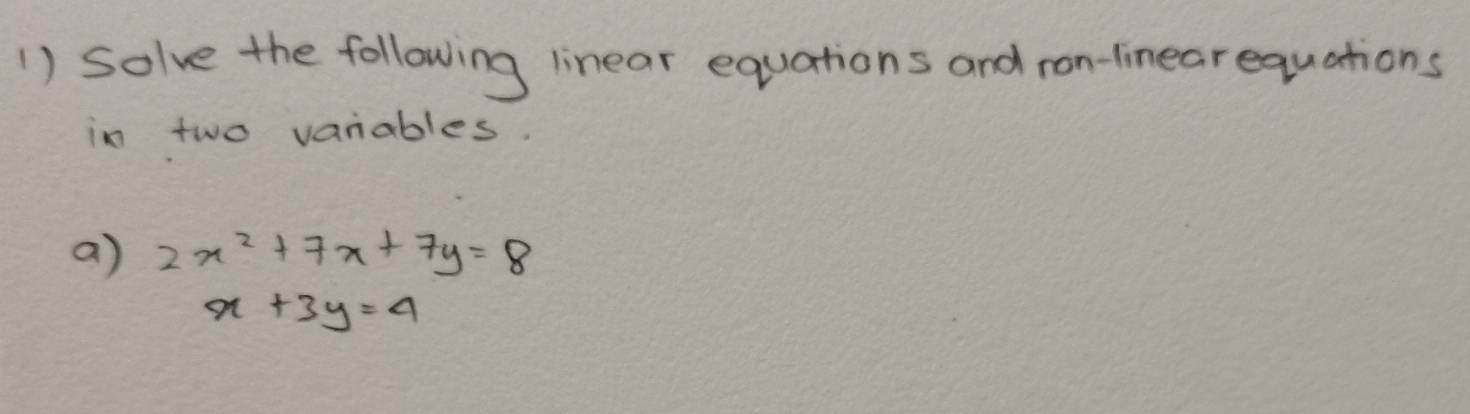 1) Solve the following linear equations and non-linear equations
in two variables.
a) 2x² + 7x + 7y = 8
x + 3y = 4